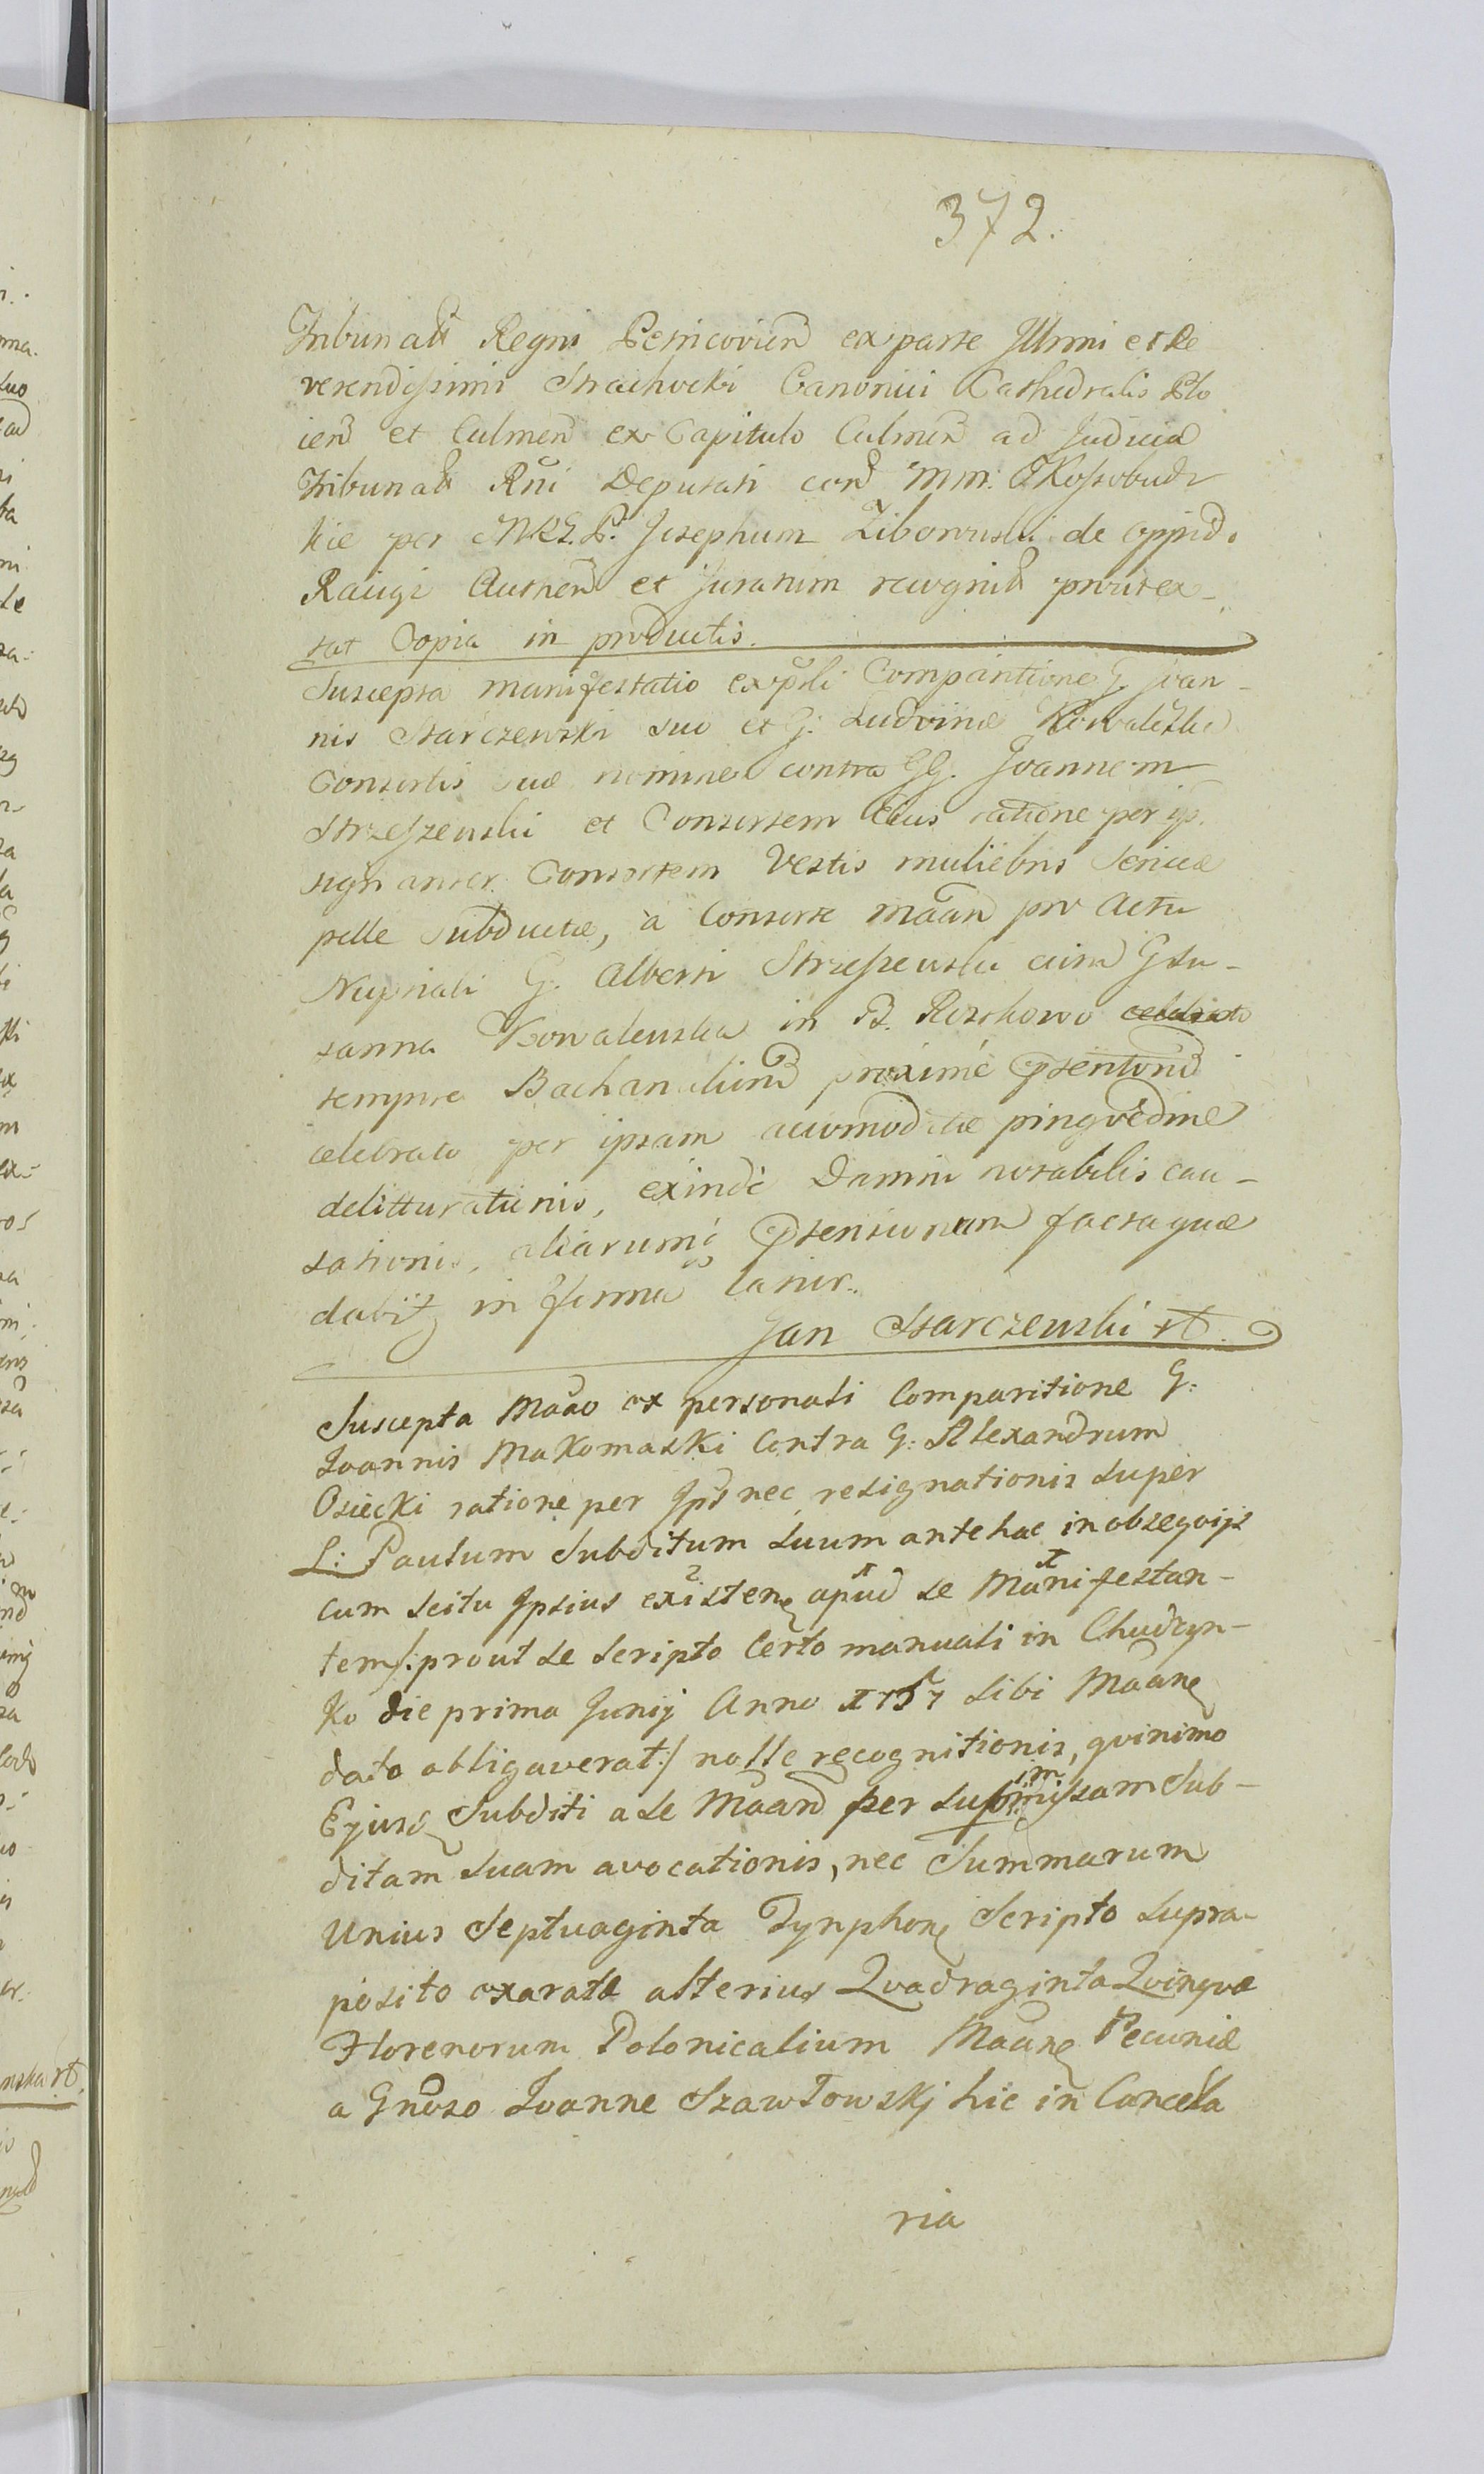 372.
Tribunalis Regni Petricovien ex parte Illrmi et Re
verendissimi Strachocki Canonici Cathedralis Plo
cien et Culmen ex Capitulo Culmen ad Judicia
Tribunalis Rñi Deputati cord MM. Kossobudz
kie per MRS. P. Josephum Zibowski de oppido
Raciąż Authen et Juratum recognit prout ex-
tat Copia in productis.
Suscepta manifestatio ex psli Comparitione G. Joan-
nis Starczewski suo et G. Ludvinæ Kowalewska
Consortis suæ nomine contra GG. Joannem
Strzeszewski et Consortem Ejus ratione per ip.
signanter Consortem Vestis muliebris Sericeæ
pelle subductæ, à Consorte mãan pro Actu
Nuptiali G. Alberti Strzeszewski cum G Zu-
sanna Kowalewska in B. Roschowo
tempore Bachanaliund proximè Psentond
celebrato per ipsam accomodatæ pingvedine
delitturationis, exindè Damni notabilis cau-
sationis, aliarumq Ptensionum factaquæ
dabit in forma latiur.
Jan Starczewski rt.
Suscepta Mãao ex personali Comparitione G:
Ioannis Makomaski Contra G: Alexandrum
Osiecki ratione per Ipsd nec resignationis super
L: Paulum Subditum Suum antehac in obsequijs
cum scitu Ipsius existenē apud se Manifestan-
tem /: prout se scripto Certo manuali in Chudzyn-
ko die prima Junij Anno 1757 sibi Mãanē
dato obligaverat :/ nolle recognitionis, quinimo
Ejusd Subditi a se Mãand per submissam Sub-
ditam Suam avocationis, nec Summarum
Unius Septuaginta Tynphonē Scripto supra-
posito exaratæ alterius Quadraginta Quinqvæ
Florenorum Polonicalium Mãanē Pecuniæ
a Gnõso Ioanne Szawłowskj hic in Cancela
ria